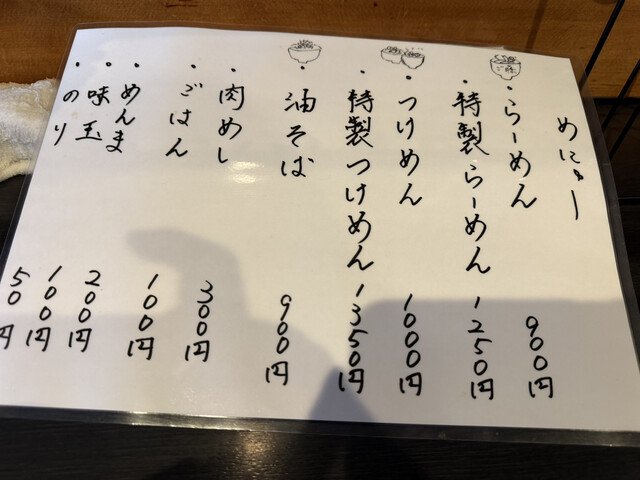 めにゅー
・らーめん 900円
・特製らーめん 1250円
・つけめん 1000円
・特製つけめん 1350円
・油そば 900円
・肉めし 300円
・ごはん 100円
・めんま 200円
・味玉 100円
・のり 50円